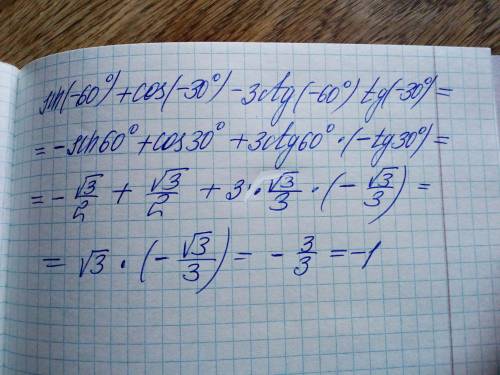 sin(-60°) + cos(-30°) - 3ctg(-60°) tg(-30°) =
= -sin60° + cos30° + 3ctg60° · (-tg30°) =
= - √3/2 + √3/2 + 3 · √3/3 · (- √3/3) =
= √3 · (- √3/3) = - 3/3 = -1